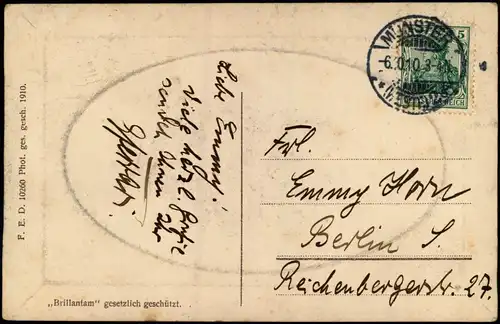 MÜNSTER
6.10.10.3-4N.
(WESTF.)
5
REICH
Liebe Emmy!
Viele herzl. Grüße
sendet Ihnen Ihr
Frl.
Emmy Horn
Berlin S.
Reichenbergerstr. 27.
F. E. D. 10260 Phot. ges. gesch. 1910.
„Brillantam“ gesetzlich geschützt.